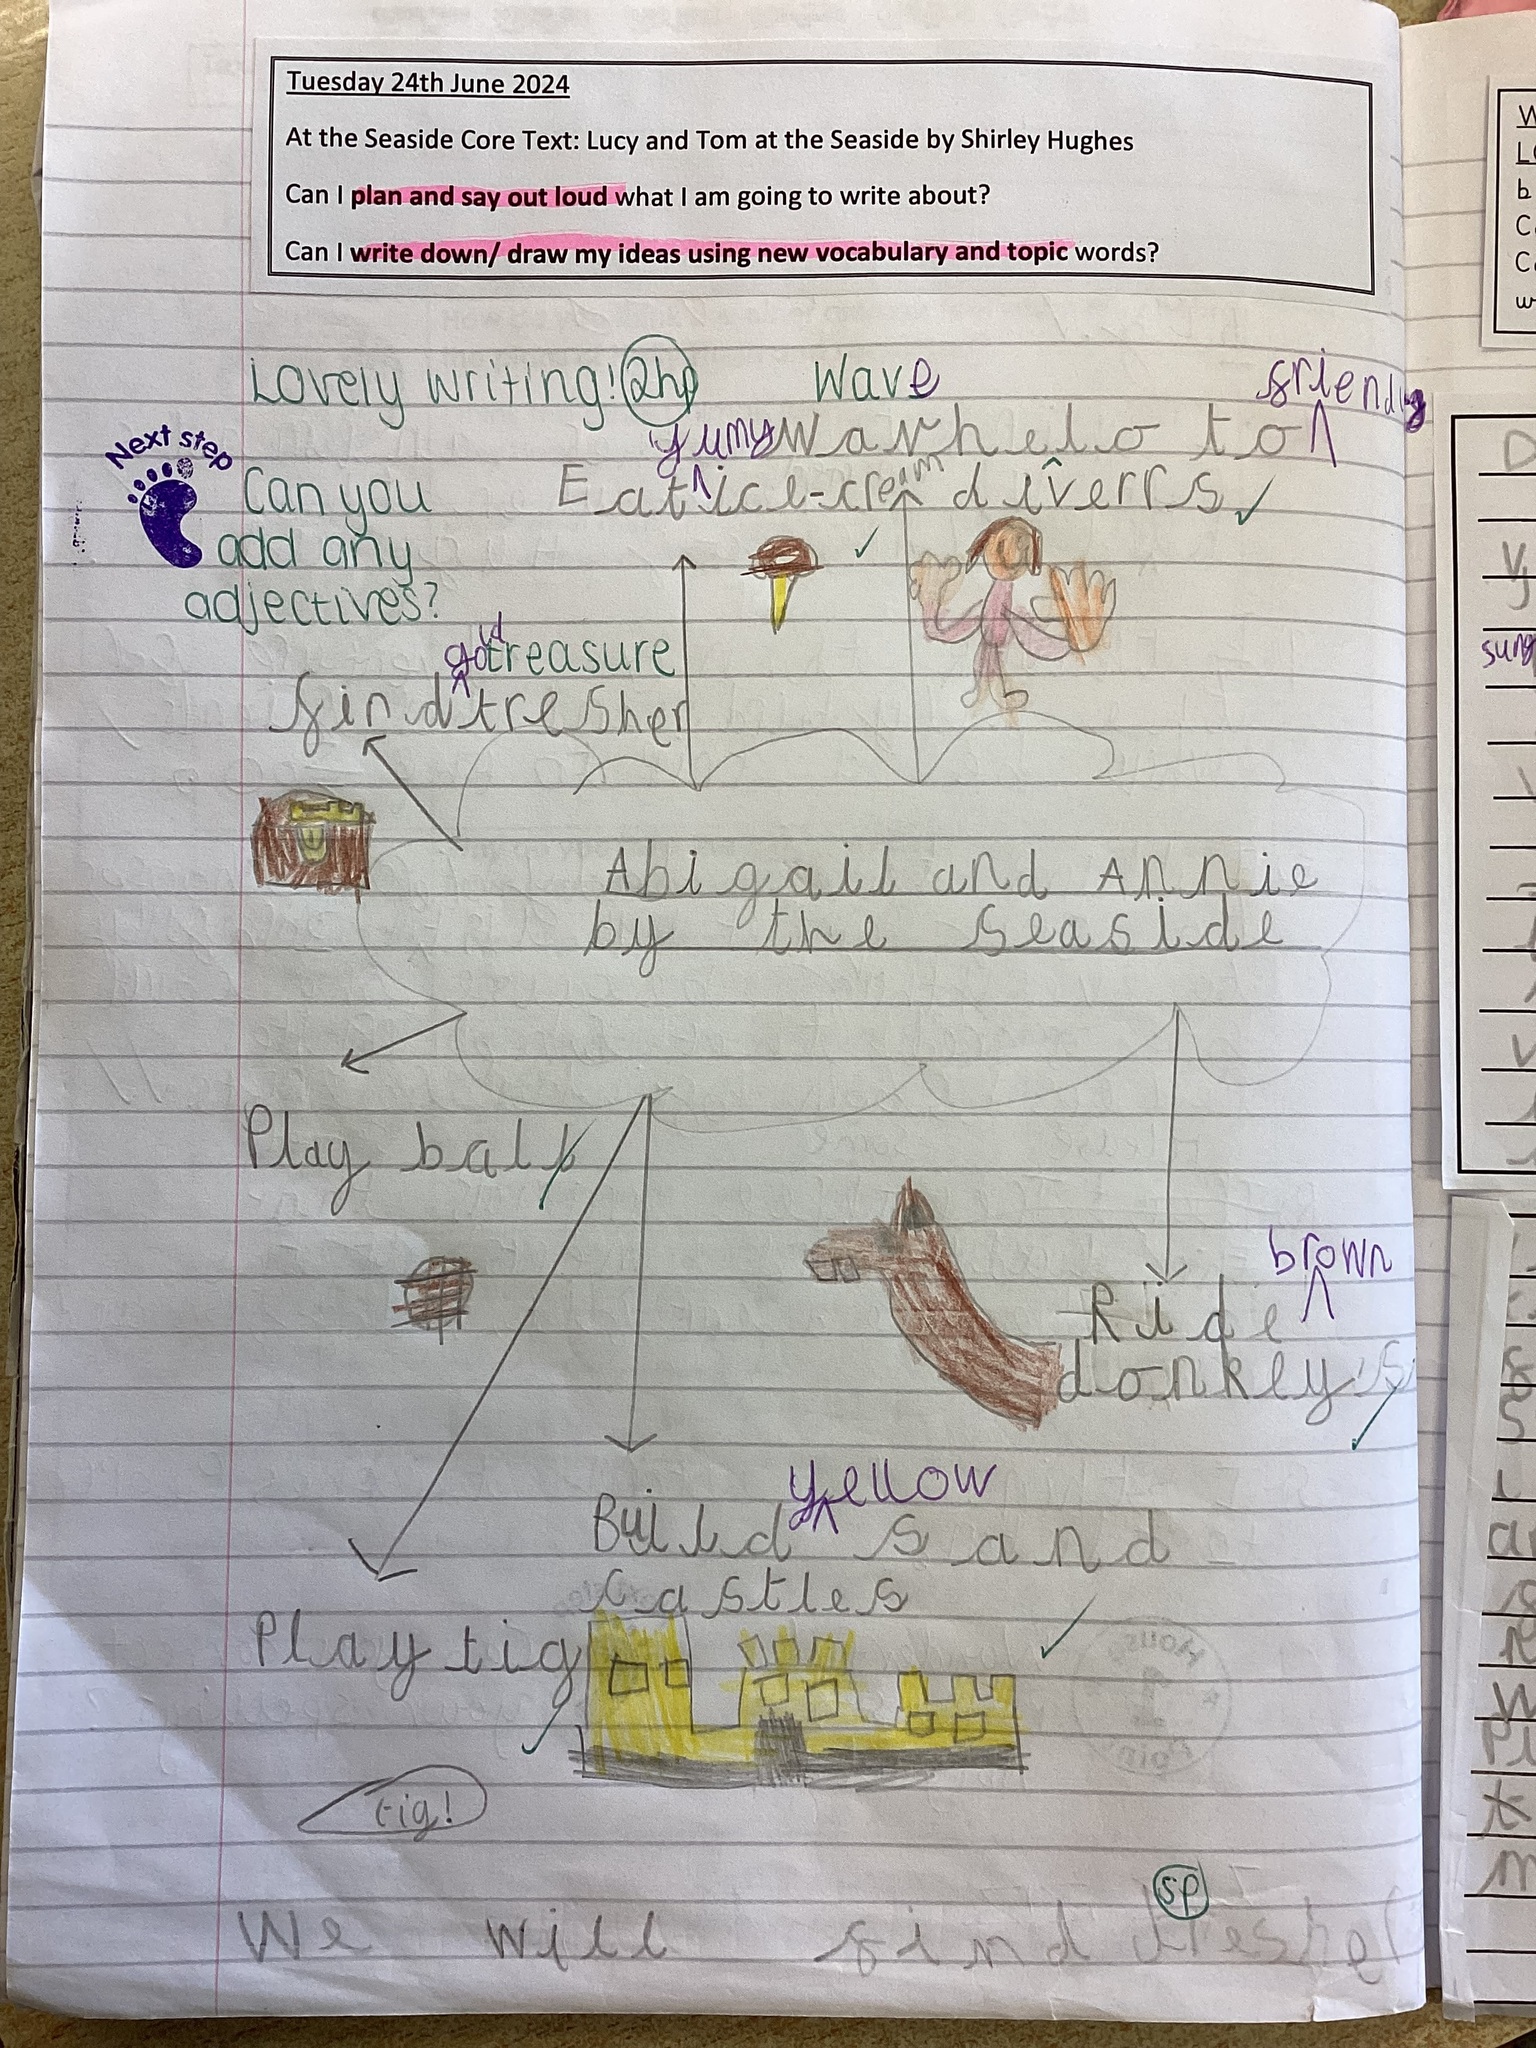 Tuesday 24th June 2024
At the Seaside Core Text: Lucy and Tom at the Seaside by Shirley Hughes
Can I plan and say out loud what I am going to write about?
Can I write down/ draw my ideas using new vocabulary and topic words?
Lovely writing! 2hp
Wave
friendly
Next step
Can you
add any
adjectives?
yumy
Wav helo to
Eat ice-cream
diverrs
gold
treasure
find tresher
Abigail and Annie
by the seaside
Play ball
brown
Ride
donkey's
yellow
Build sand
Castles
Play tig
tig!
sp
We will find tresher